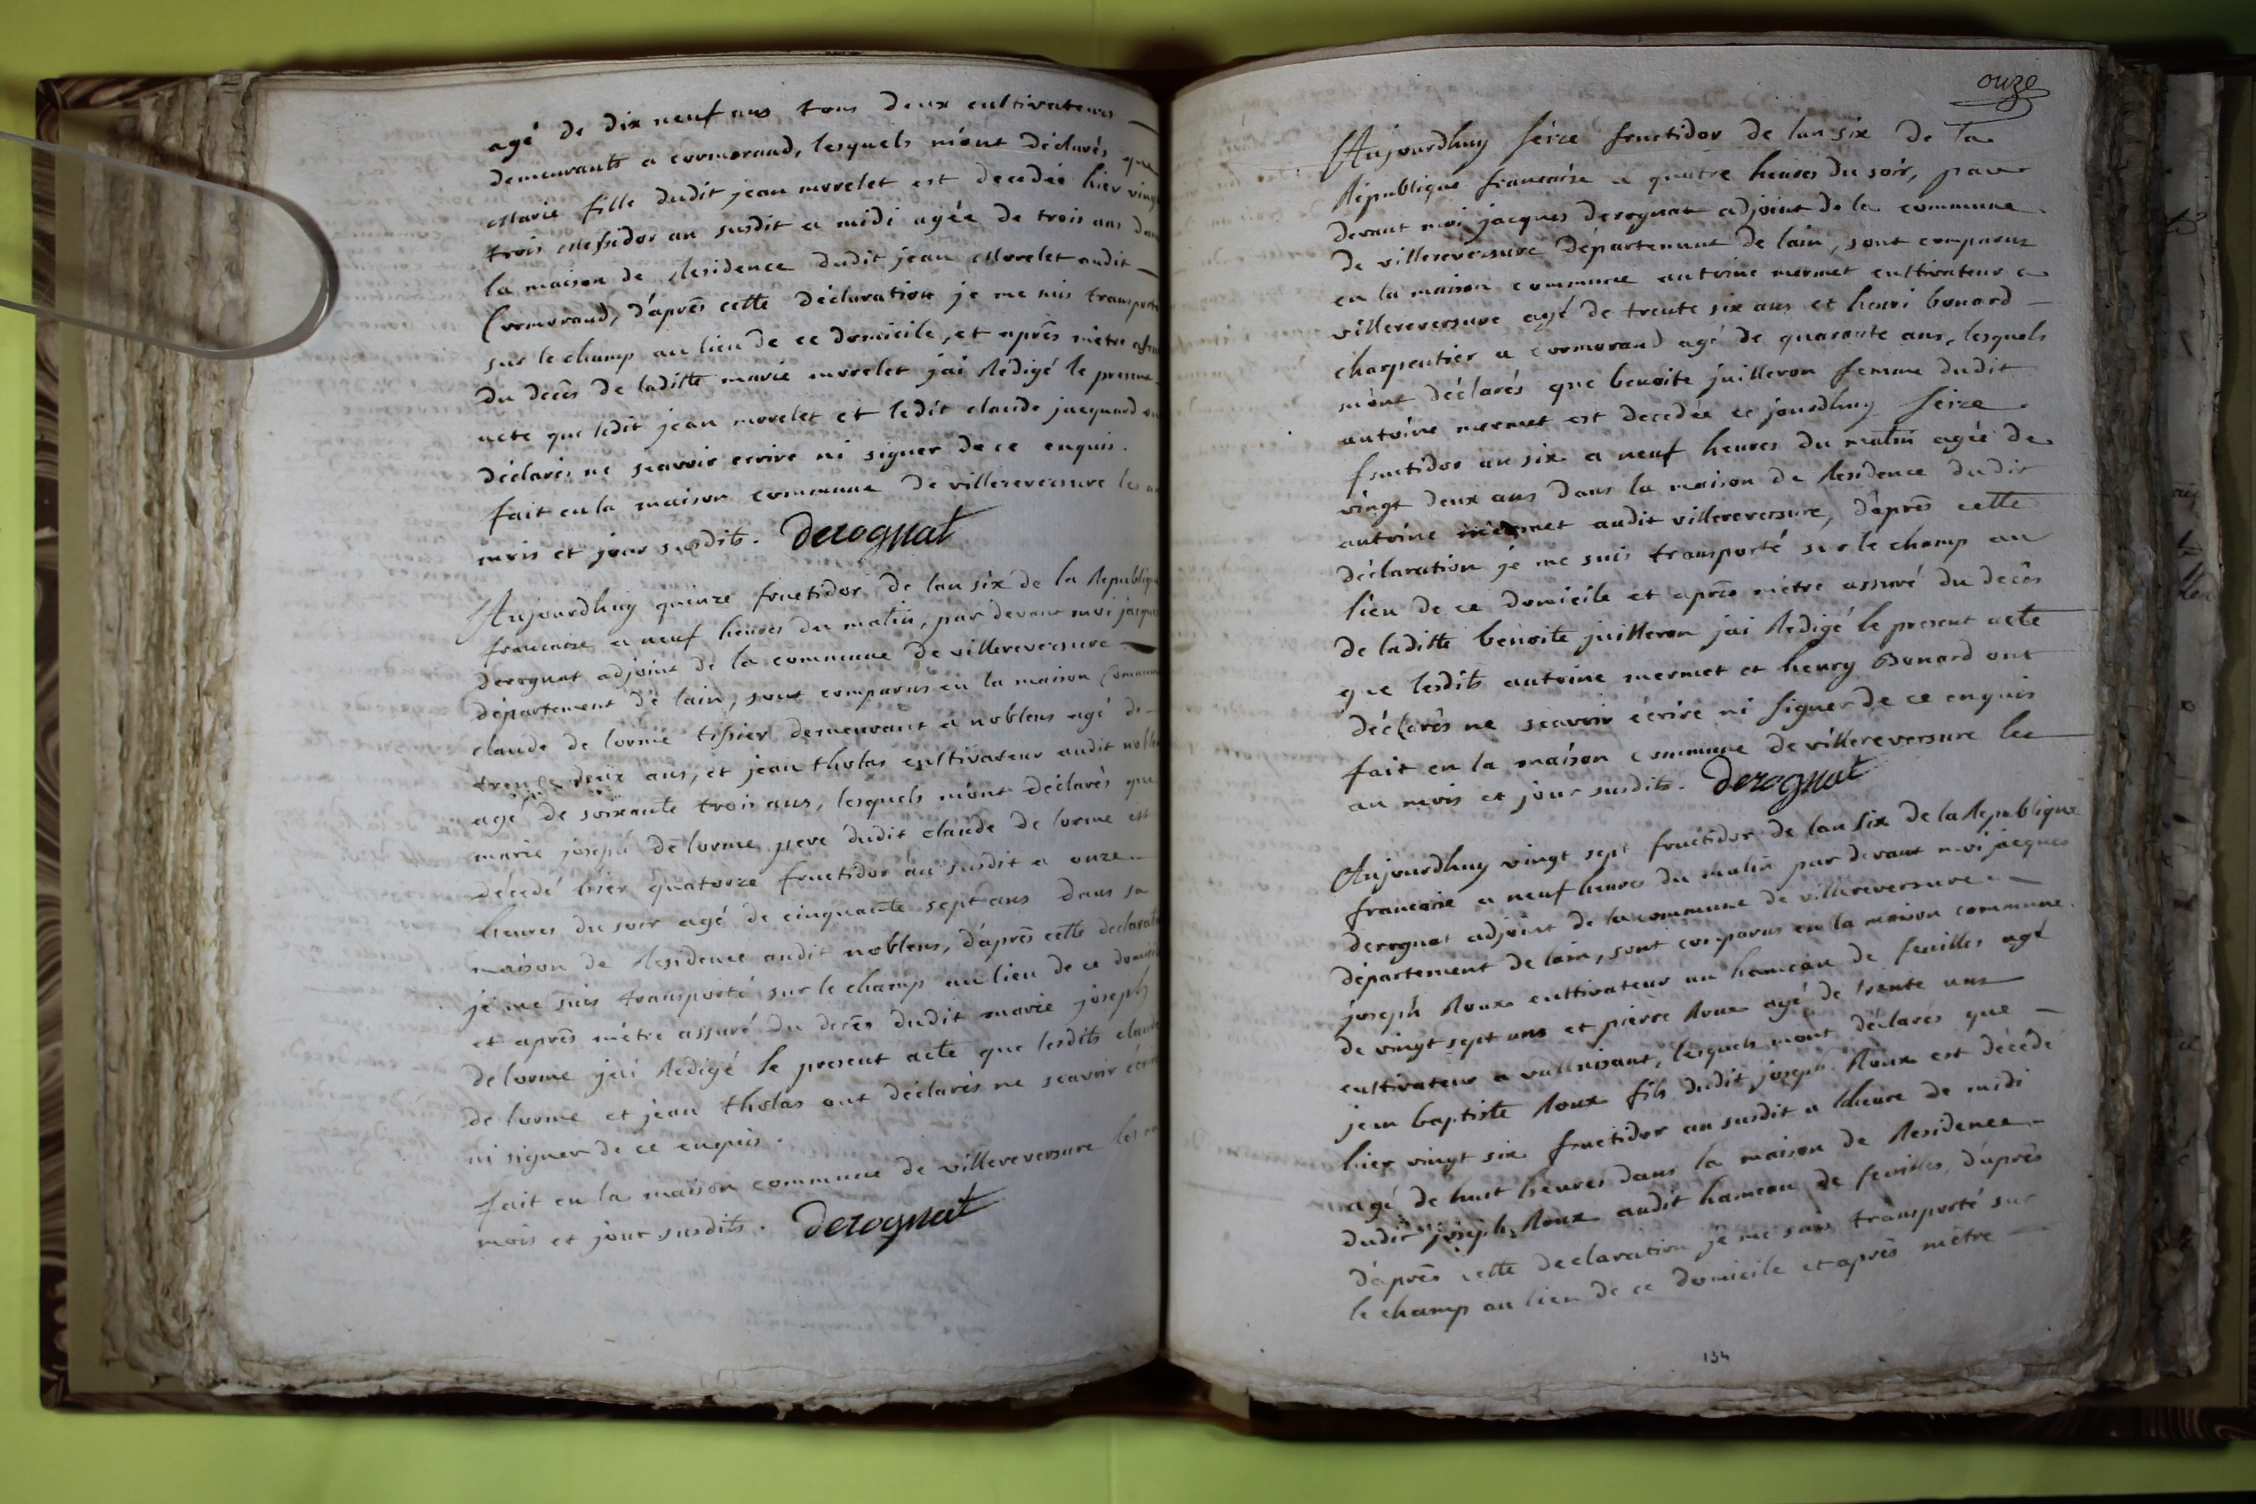 agé de dix neuf ans tous deux cultivateurs
demeurants a cormoraud, lesquels m'ont déclarés que
Marie fille dudit jean morelet est decedée hier vingt
trois Messidor an susdit a midi agée de trois ans dans
la maison de Residence dudit jean Morelet audit
Cormoraud, d'aprês cette déclaration je me suis transporté
sur le champ au lieu de ce domicile, et aprês mêtre assu
du decês de laditte marie morelet jai Redigé le present
acte que ledit jean morelet et ledit claude jacquard on
déclarés ne scavoir ecrire ni signer de ce enquis.
fait en la maison commune de villereversure les an
mois et jour susdits. derognat
Aujourdhuy quinze fructidor de lan six de la Republique
francaise a neuf heures du matin, par devant moi jacques
derognat adjoint de la commune de villereversure
département de lain, sont comparus en la maison Commune
claude de lorme tissier demeurant a noblens agé de
trente deux ans, et jean tholas cultivateur audit noblens
agé de soixante trois ans, lesquels m'ont déclarés que
marie joseph de lorme pere dudit claude de lorme est
décedé hier quatorze fructidor an susdit a onze
heures du soir agé de cinquante sept ans dans sa
maison de Residence audit noblens, d'aprês cette declaration
je me suis transporté sur le champ au lieu de ce domicile
et aprês mêtre assuré du decês dudit marie joseph
delorme jai Redigé le present acte que lesdits claude
de lorme et jean tholas ont déclarés ne scavoir écrire
ni signer de ce enquis.
fait en la maison commune de villereversure les an
mois et jour susdits. derognat
onze
Aujourdhuy seize fructidor de lan six de la
République francaise a quatre heures du soir, par
devant moi jacques derognat adjoint de la commune
de villereversure département de lain, sont comparus
en la maison commune antoine mermet cultivateur a
villereversure agé de trente six ans et henri bonard
charpentier a cormoraud agé de quarante ans, lesquels
m'ont déclarés que benoite juilleron femme dudit
antoine mermet est decedée ce jourdhuy seize
fructidor an six a neuf heures du matin agée de
vingt deux ans dans la maison de Residence dudit
antoine mermet audit villereversure, d'aprês cette
déclaration je me suis transporté sur le champ au
lieu de ce domicile et aprês mêtre assuré du decês
de laditte benoite juilleron jai Redigé le present acte
que lesdits antoine mermet et henry Bonard ont
déclarês ne scavoir écrire ni signer de ce enquis
fait en la maison commune de villereversure les
an mois et jour susdits. derognat
Aujourdhuy vingt sept fructidor de lan six de la Republique
francaise a neuf heures du matin par devant moi jacques
derognat adjoint de la commune de villereversure
département de lain, sont comparus en la maison commune
joseph Roux cultivateur au hameau de feuilles agé
de vingt sept ans et pierre Roux agé de trente ans
cultivateur a vallnisant, lesquels mont déclarés que
jean baptiste Roux fils dudit joseph Roux est décédé
hier vingt six fructidor an susdit a lheure de midi
agé de huit heures dans la maison de Residence
dudit joseph Roux audit hameau de feuilles, d'aprês
d'aprês cette declaration je me suis transporté sur
le champ au lieu de ce domicile et aprês mêtre
134